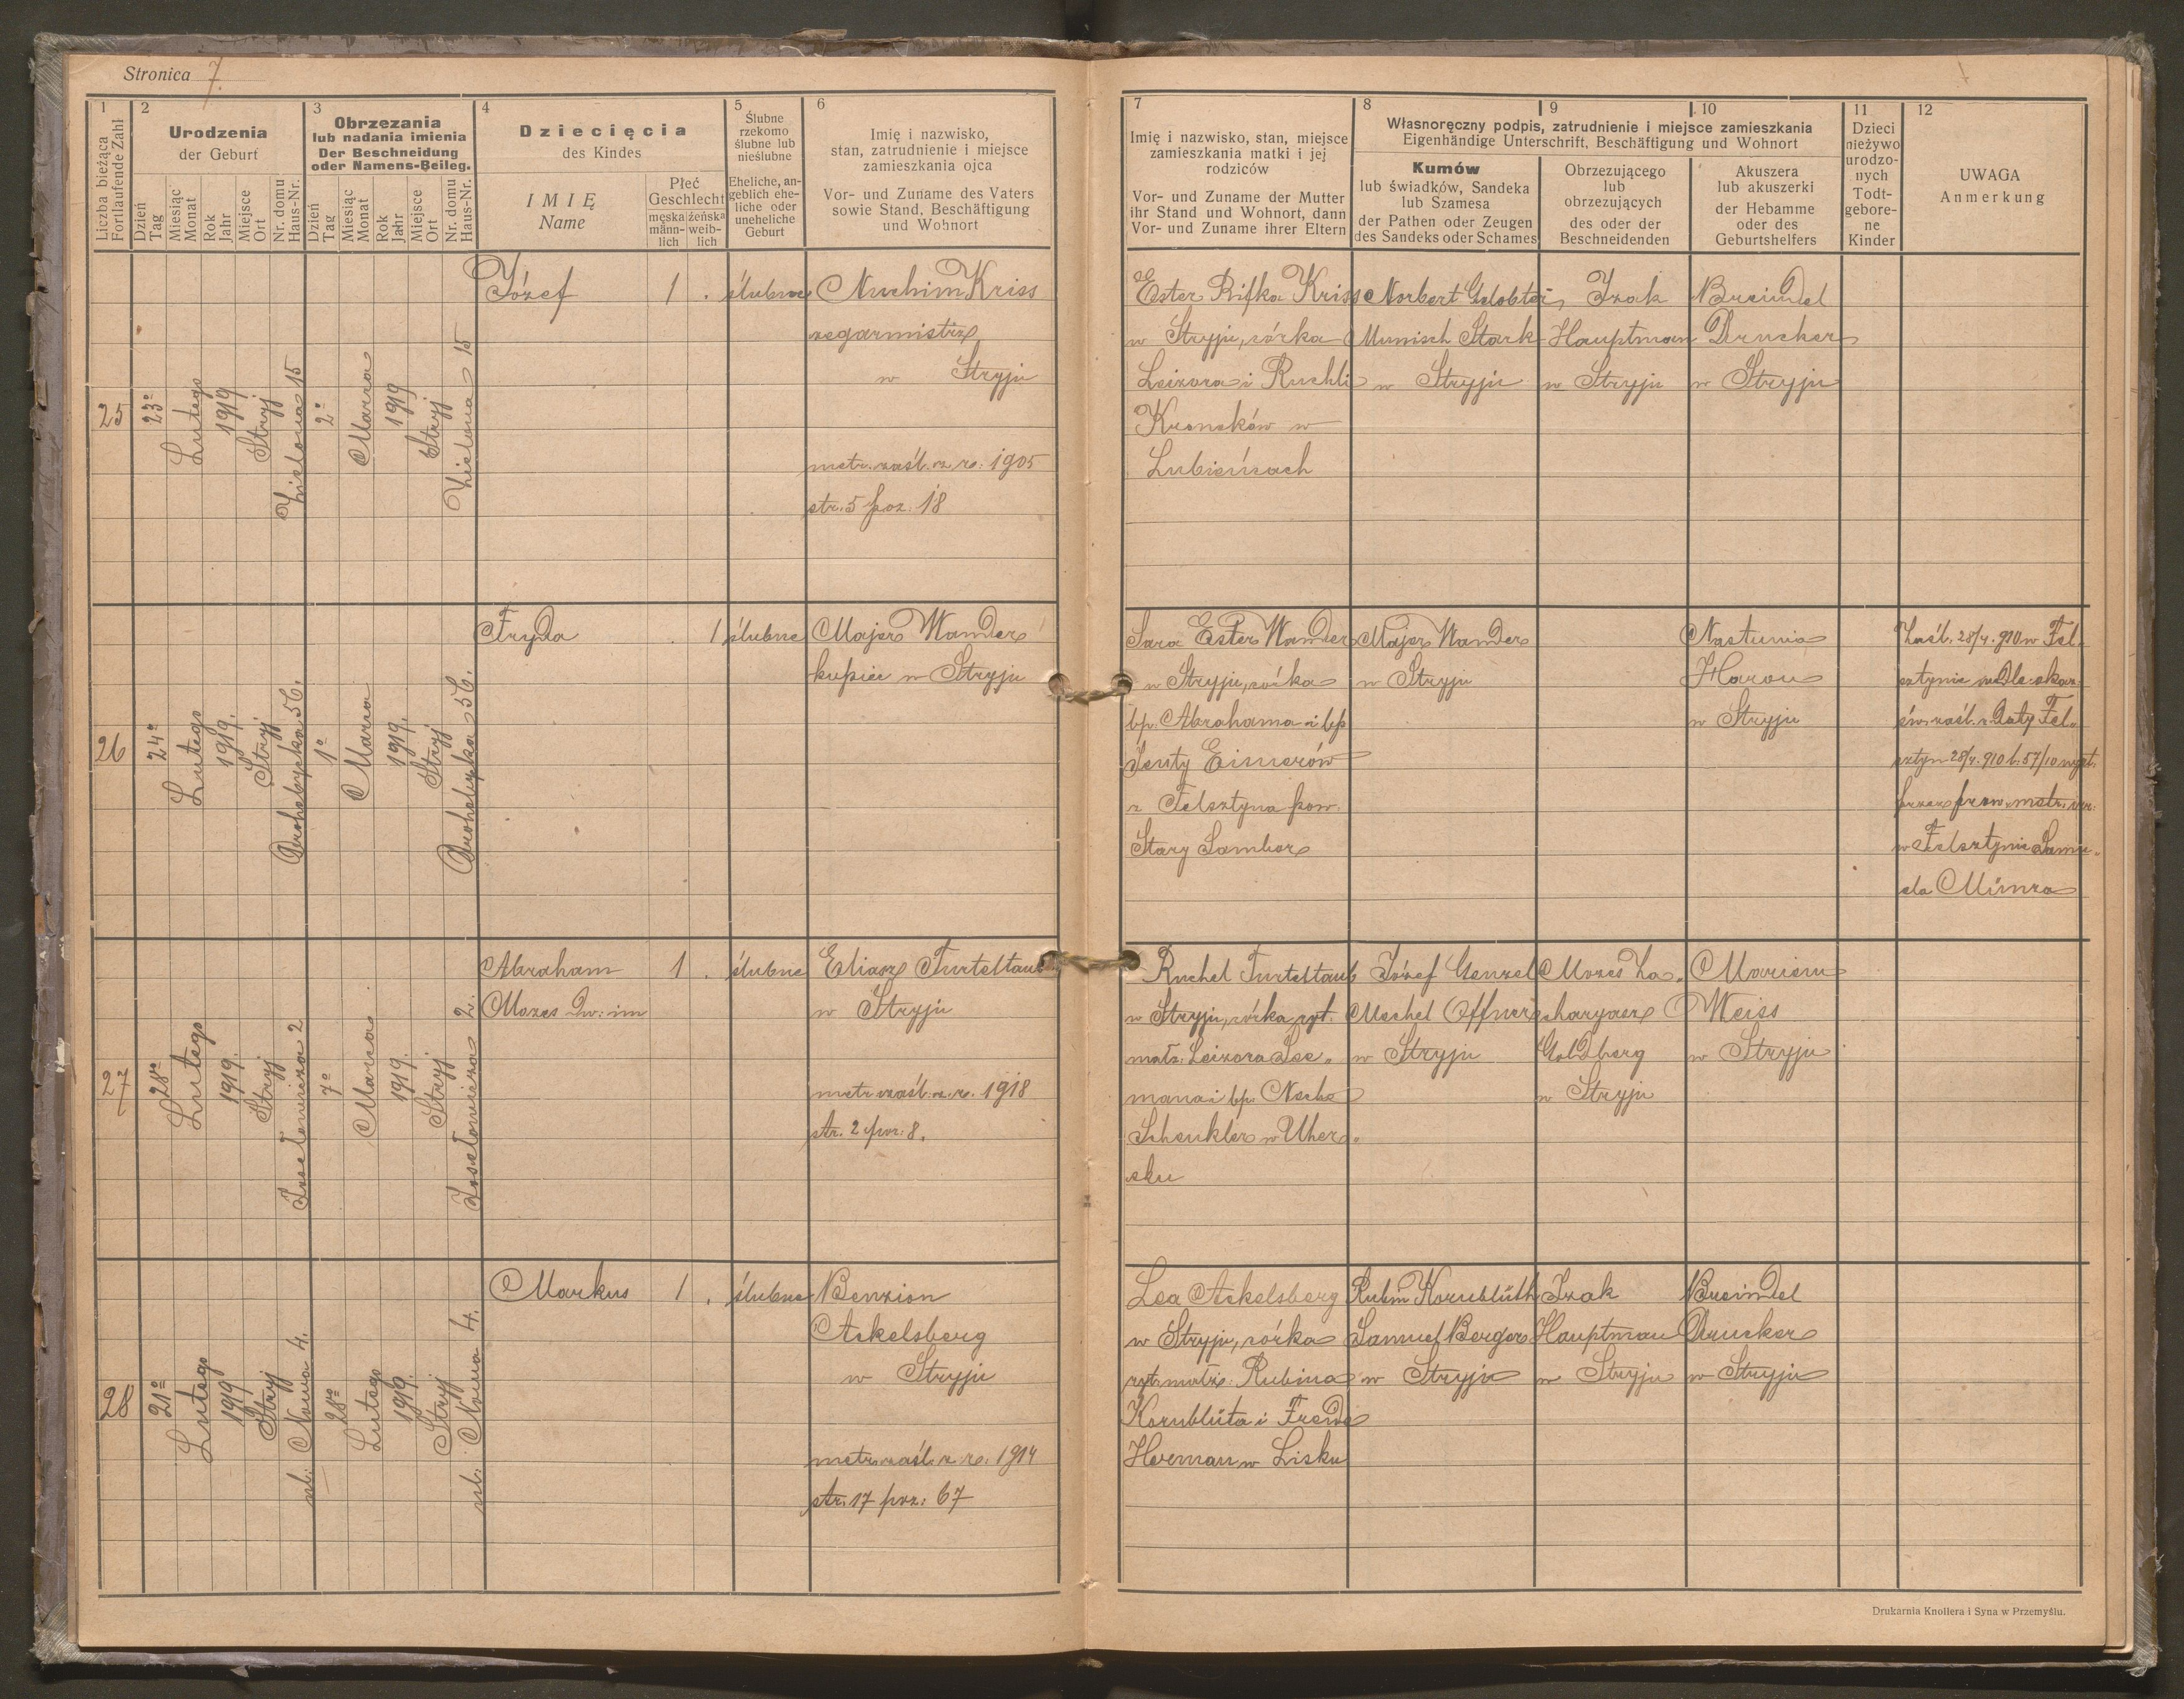 Stronica 7.
1
Liczba bieżąca
Fortlaufende Zahl
2
Urodzenia
der Geburt
Dzień
Tag
Miesiąc
Monat
Rok
Jahr
Miejsce
Ort
Nr. domu
Haus-Nr.
3
Obrzezania
lub nadania imienia
Der Beschneidung
oder Namens-Beileg.
Dzień
Tag
Miesiąc
Monat
Rok
Jahr
Miejsce
Ort
Nr. domu
Haus-Nr.
4
Dziecięcia
des Kindes
IMIĘ
Name
Płeć
Geschlecht
męska
männ-
lich
żeńska
weib-
lich
5
Ślubne
rzekomo
ślubne lub
nieślubne
Eheliche, an-
geblich ehe-
liche oder
uneheliche
Geburt
6
Imię i nazwisko,
stan, zatrudnienie i miejsce
zamieszkania ojca
Vor- und Zuname des Vaters
sowie Stand, Beschäftigung
und Wohnort
7
Imię i nazwisko, stan, miejsce
zamieszkania matki i jej
rodziców
Vor- und Zuname der Mutter
ihr Stand und Wohnort, dann
Vor- und Zuname ihrer Eltern
8 9 10
Własnoręczny podpis, zatrudnienie i miejsce zamieszkania
Eigenhändige Unterschrift, Beschäftigung und Wohnort
Kumów
lub świadków, Sandeka
lub Szamesa
der Pathen oder Zeugen
des Sandeks oder Schames
Obrzezującego
lub
obrzezujących
des oder der
Beschneidenden
Akuszera
lub akuszerki
der Hebamme
oder des
Geburtshelfers
11
Dzieci
nieżywo
urodzo-
nych
Todt-
gebore-
ne
Kinder
12
UWAGA
Anmerkung
25
23°
Lutego
1919
Stryj
Zielona 15
2°
Marca
1919
Stryj
Zielona 15
Józef
1 .
ślubne
Nuchim Kriss
zegarmistrz
w Stryju
metr. zaśl. z r. 1905
str. 5 poz. 18
Ester Rifka Kriss
w Stryju, córka
Leizora i Ruchli
Kronoków w
Lubieńcach
Norbert Gelobter,
Munisch Stark
w Stryju
Izak
Hauptman
w Stryju
Breindel
Drucker
w Stryju
26
24°
Lutego
1919.
Stryj
Drohobycka 56.
1°
Marca
1919.
Stryj
Drohobycka 56.
Fryda
. 1
ślubne
Majer Wander
kupiec w Stryju
Sara Ester Wander
w Stryju, córka
bp. Abrahama i bp.
Jenty Eimerów
z Felsztyna pow.
Stary Sambor
Majer Wander
w Stryju
Nastunia
Haron
w Stryju
Zaśl. 28/4. 910 w Fel-
sztynie
św. zaśl. z daty Fel-
sztyn 28/4. 910 l. 57/10 wyst.
przez prow. metr. izr.
w Felsztynie Samu-
ela Münza
27
28°
Lutego
1919.
Stryj
Josełowicza 2
7°
Marca
1919.
Stryj
Josełowicza 2.
Abraham
Mozes dw: im
1 .
ślubne
Eliasz Turteltaub
w Stryju
metr. zaśl. z r. 1918
str. 2 poz: 8.
Ruchel Turteltaub
w Stryju, córka ryt.
małż. Leizora Lee-
mana i bp. Neche
Schenkler w Uher-
sku
Józef Genzel
Mechel Offner
w Stryju
Mozes Za-
charyasz
Goldberg
w Stryju
Mariem
Weiss
w Stryju
28
21°
Lutego
1919
Stryj
ul: Nowa 4.
28°
Lutego
1919.
Stryj
ul: Nowa 4.
Markus
1 .
ślubne
Benzion
Ackelsberg
w Stryju
metr. zaśl. z r. 1914
str. 17 poz: 67
Lea Ackelsberg
w Stryju, córka
ryt. małż. Rubina
Kornblüta i Freidy
Herman w Lisku
Rubin Kornblüth
Samuel Berger
w Stryju
Izak
Hauptman
w Stryju
Breindel
Drucker
w Stryju
Drukarnia Knollera i Syna w Przemyślu.